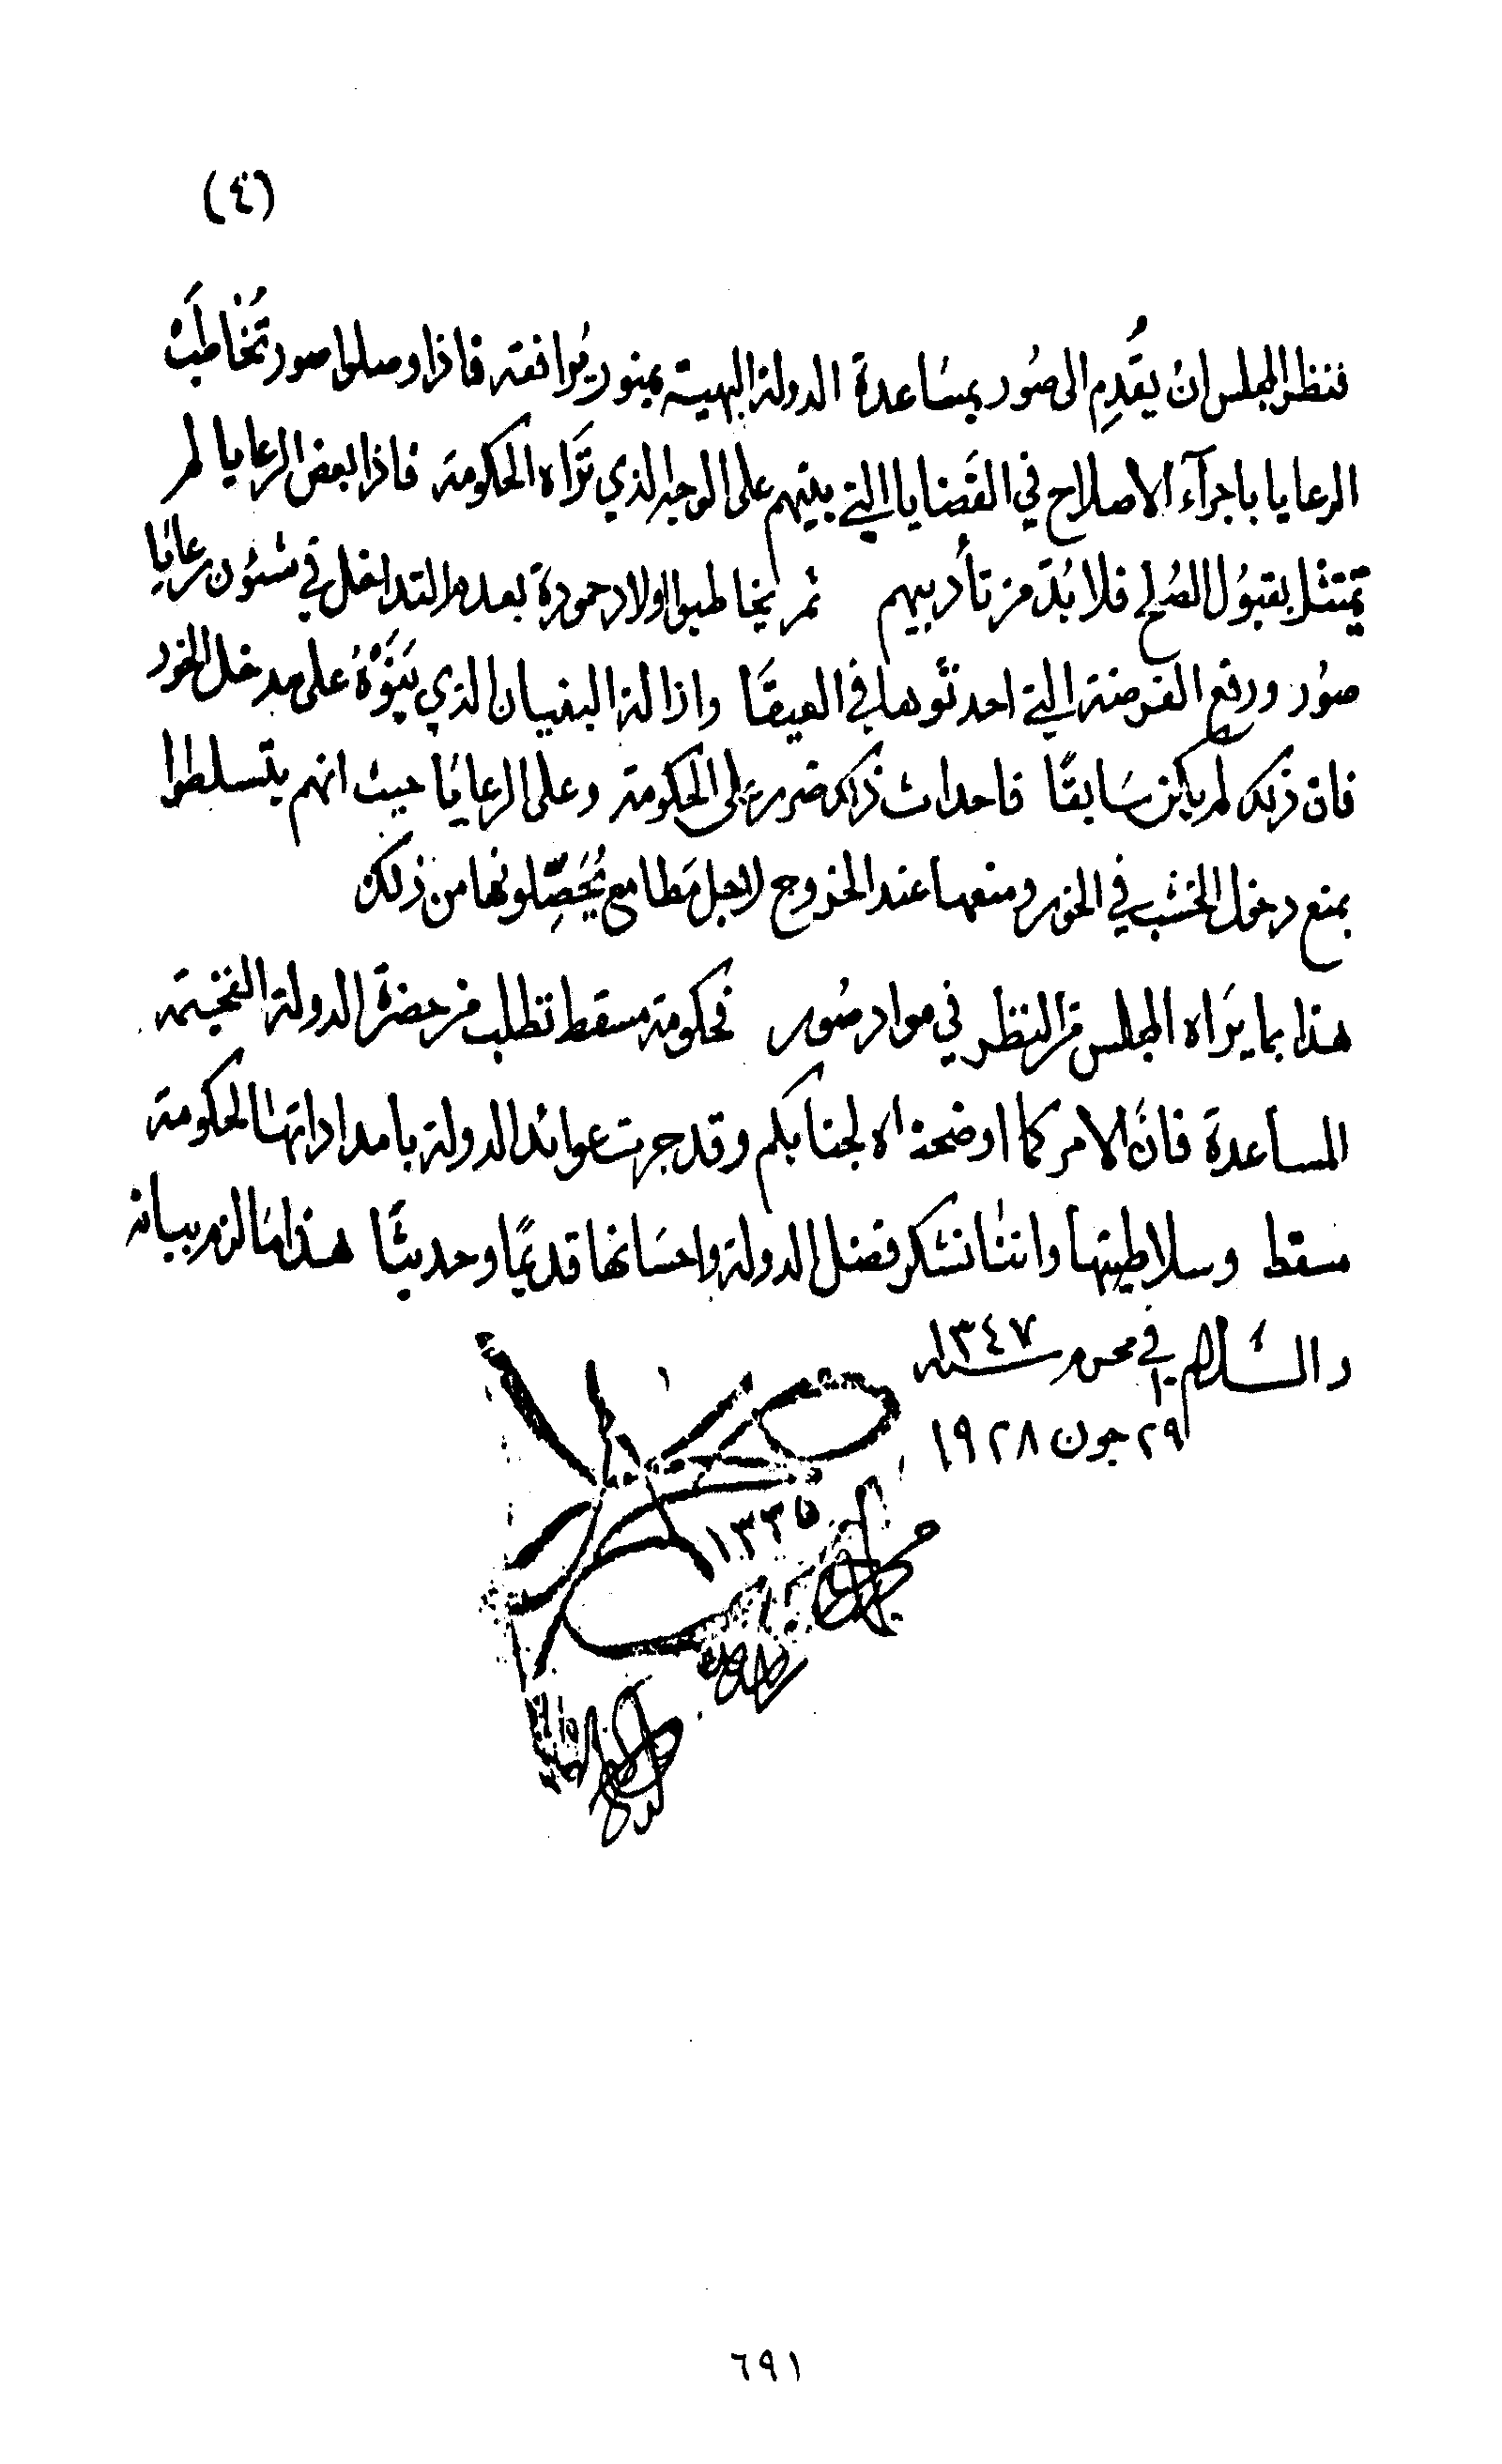 (٤)
فنظر المجلس انْ يقُدِم الى صُور بمسَاعدة الدولة البهية بمنور يُرافقه فاذا وصلوا صور تُخَاطَبْ
الرعايا باجرآء الاصلاح في القَضايا التي بينهم على الوجه الذي تَراه الحكومة فاذا بعض الرعايا لم
تمتثل بقبوُل الصُلح فلا بُدّ من تأديبهم ثم يخاطبوا اولاد حمودة بعدم التداخل في شئون رعايَا
صوُر ورفع الفرضة التي احدثَوها في العيقَا وازالة البنيان الذي بَنَوْهُ على مدخل الخور
فان ذلك لم يكن سَابقًا فاحداث ذلك ضرر على الحكومة وعلى الرعايَا حيث انهم يتسلطوا
بمنع دخول الخشب في الخور ومنعها عند الخروج لاجل مَطامع يُحَصِّلونها من ذلك
هذا بما يَراه المجلس من النظر في مواد صُور فحكومة مسقط تطلب من حضرة الدولة الفخيمة
المساعدة فانَ الامر كما اوضحناه لجنابكم وقد جرت عوائد الدولة بامداداتها لحكومة
مسقط وسلاطينها واننَا نشكر فضل الدولة واحسَانها قديمًا وحديثًا هذا مَا لزم بيانه
والسَّلام في ١٠ محرم سنة ١٣٤٧
٢٩ جون ١٩٢٨
١٣٣٥
٦٩١